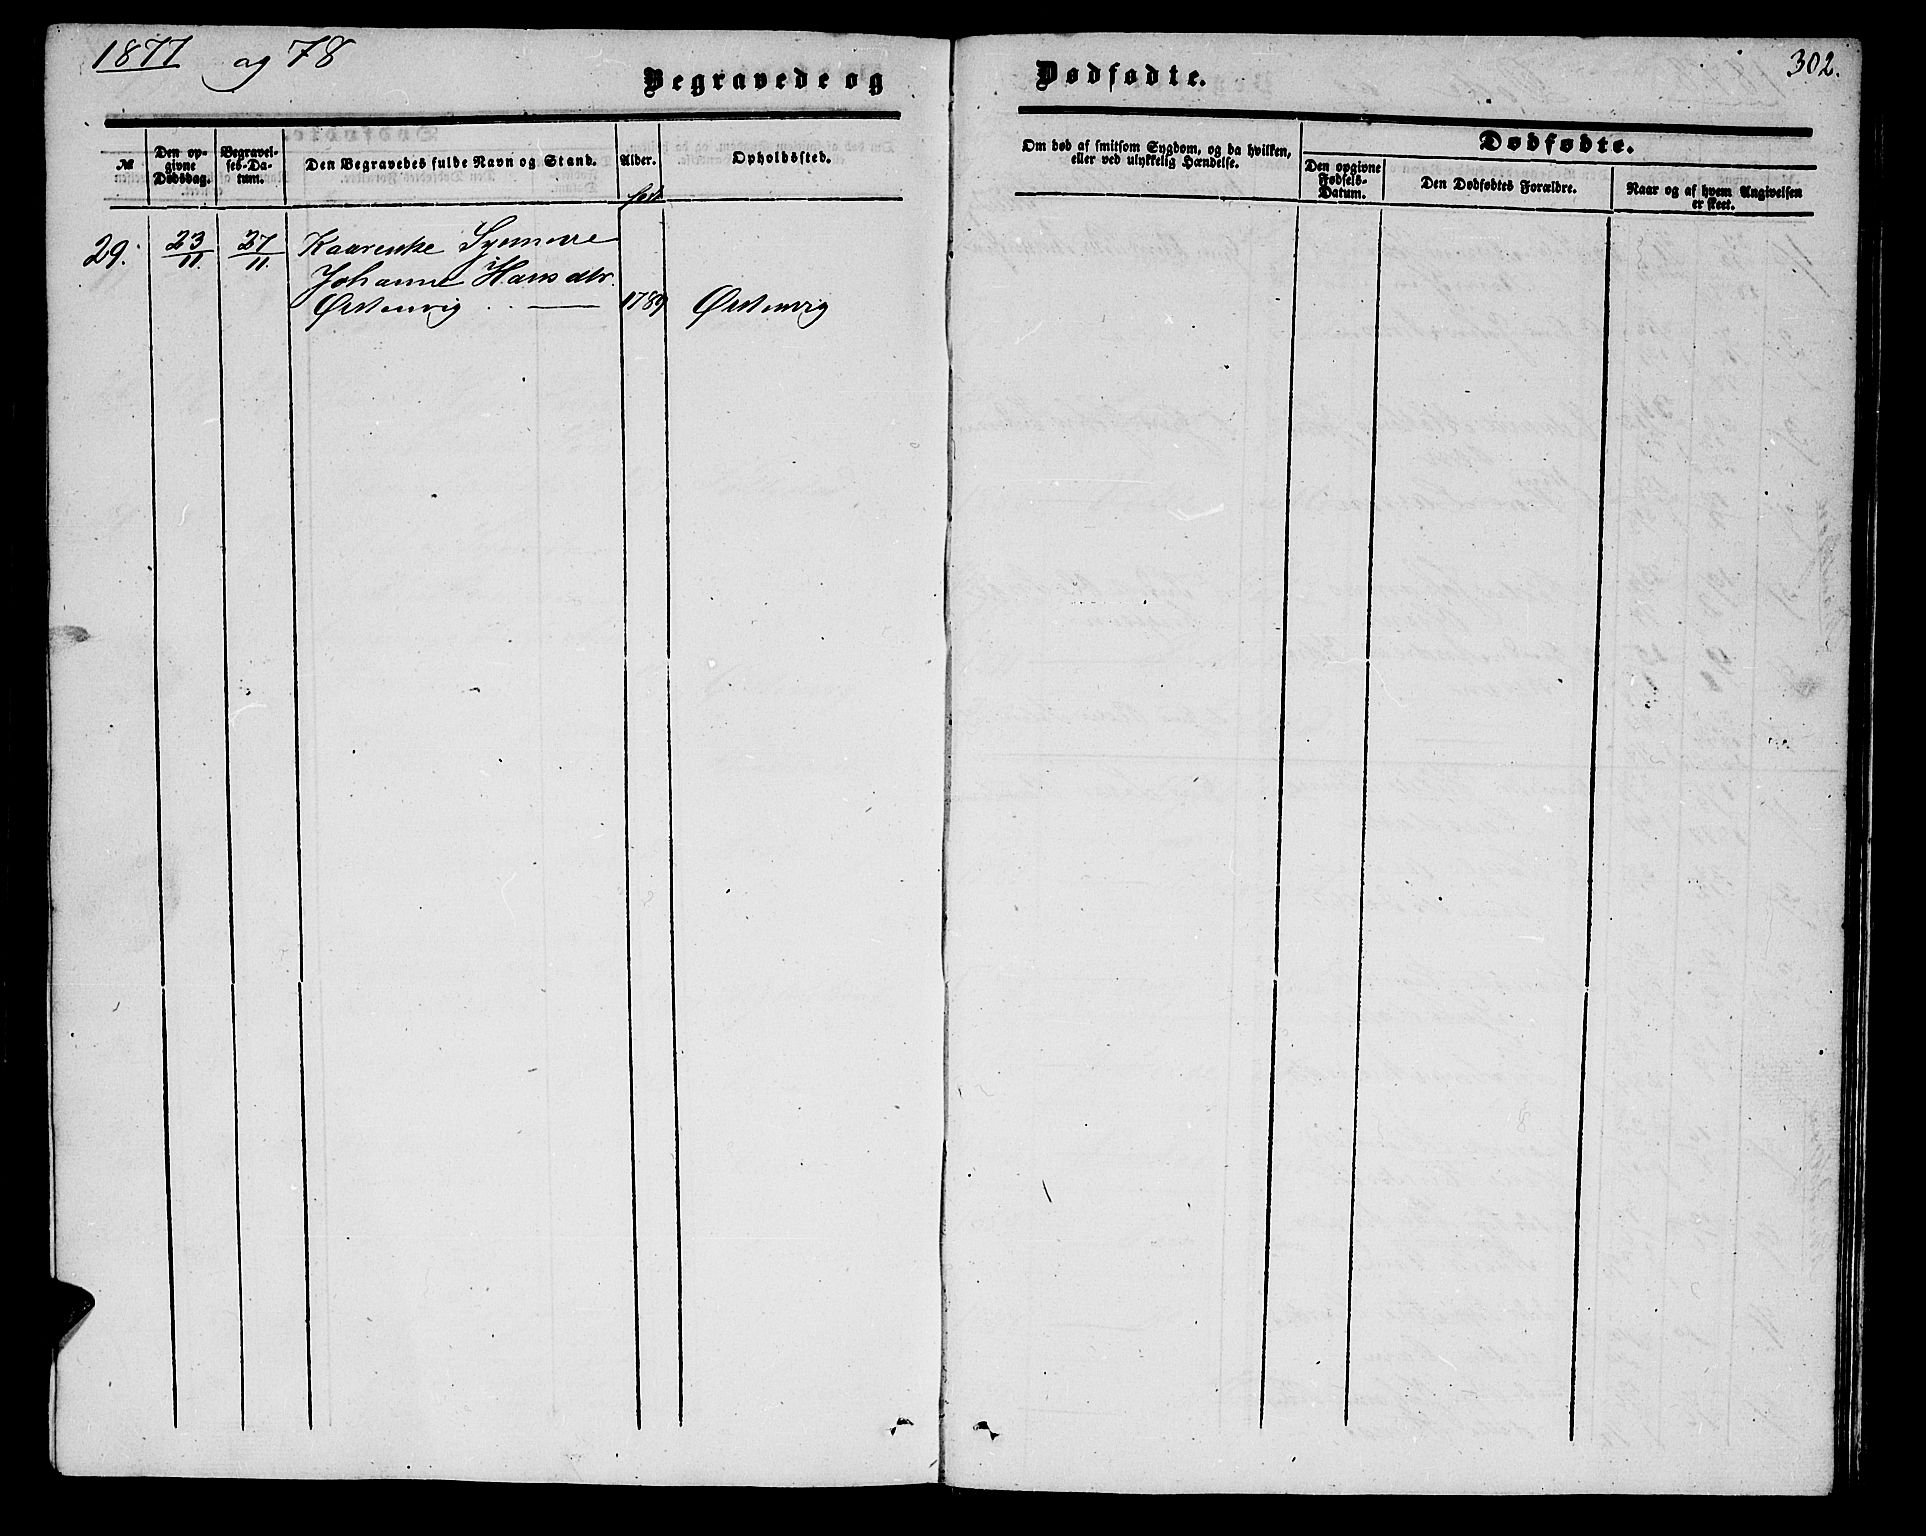 1877 og 78
302.
Begravede og
Dødfødte.
№
Den opgivne Dødsdag.
Begravelses-Datum.
Den Begravedes fulde Navn og Stand.
Alder.
Opholdssted.
Om død af smitsom Sygdom, og da hvilken, eller ved ulykkelig Hændelse.
Dødfødte.
Den opgivne Fødsels-Datum.
Den Dødfødtes Forældre.
Naar og af hvem Angivelsen er skeet.
født
29. 23/11. 27/11. Enke Synneve
Johanne Hansdtr.
Ørstenvig 1789 Ørstenvig